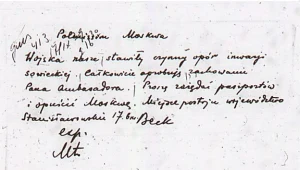 Polmission Moskwa
Wojska nasze stawiły czynny opór inwazji
sowieckiej. Całkowicie aprobuję zachowanie
Pana Ambasadora. Proszę zażądać paszportów
i opuścić Moskwę. Miejsce postoju województwo
Stanisławowskie 17. bm. Beck